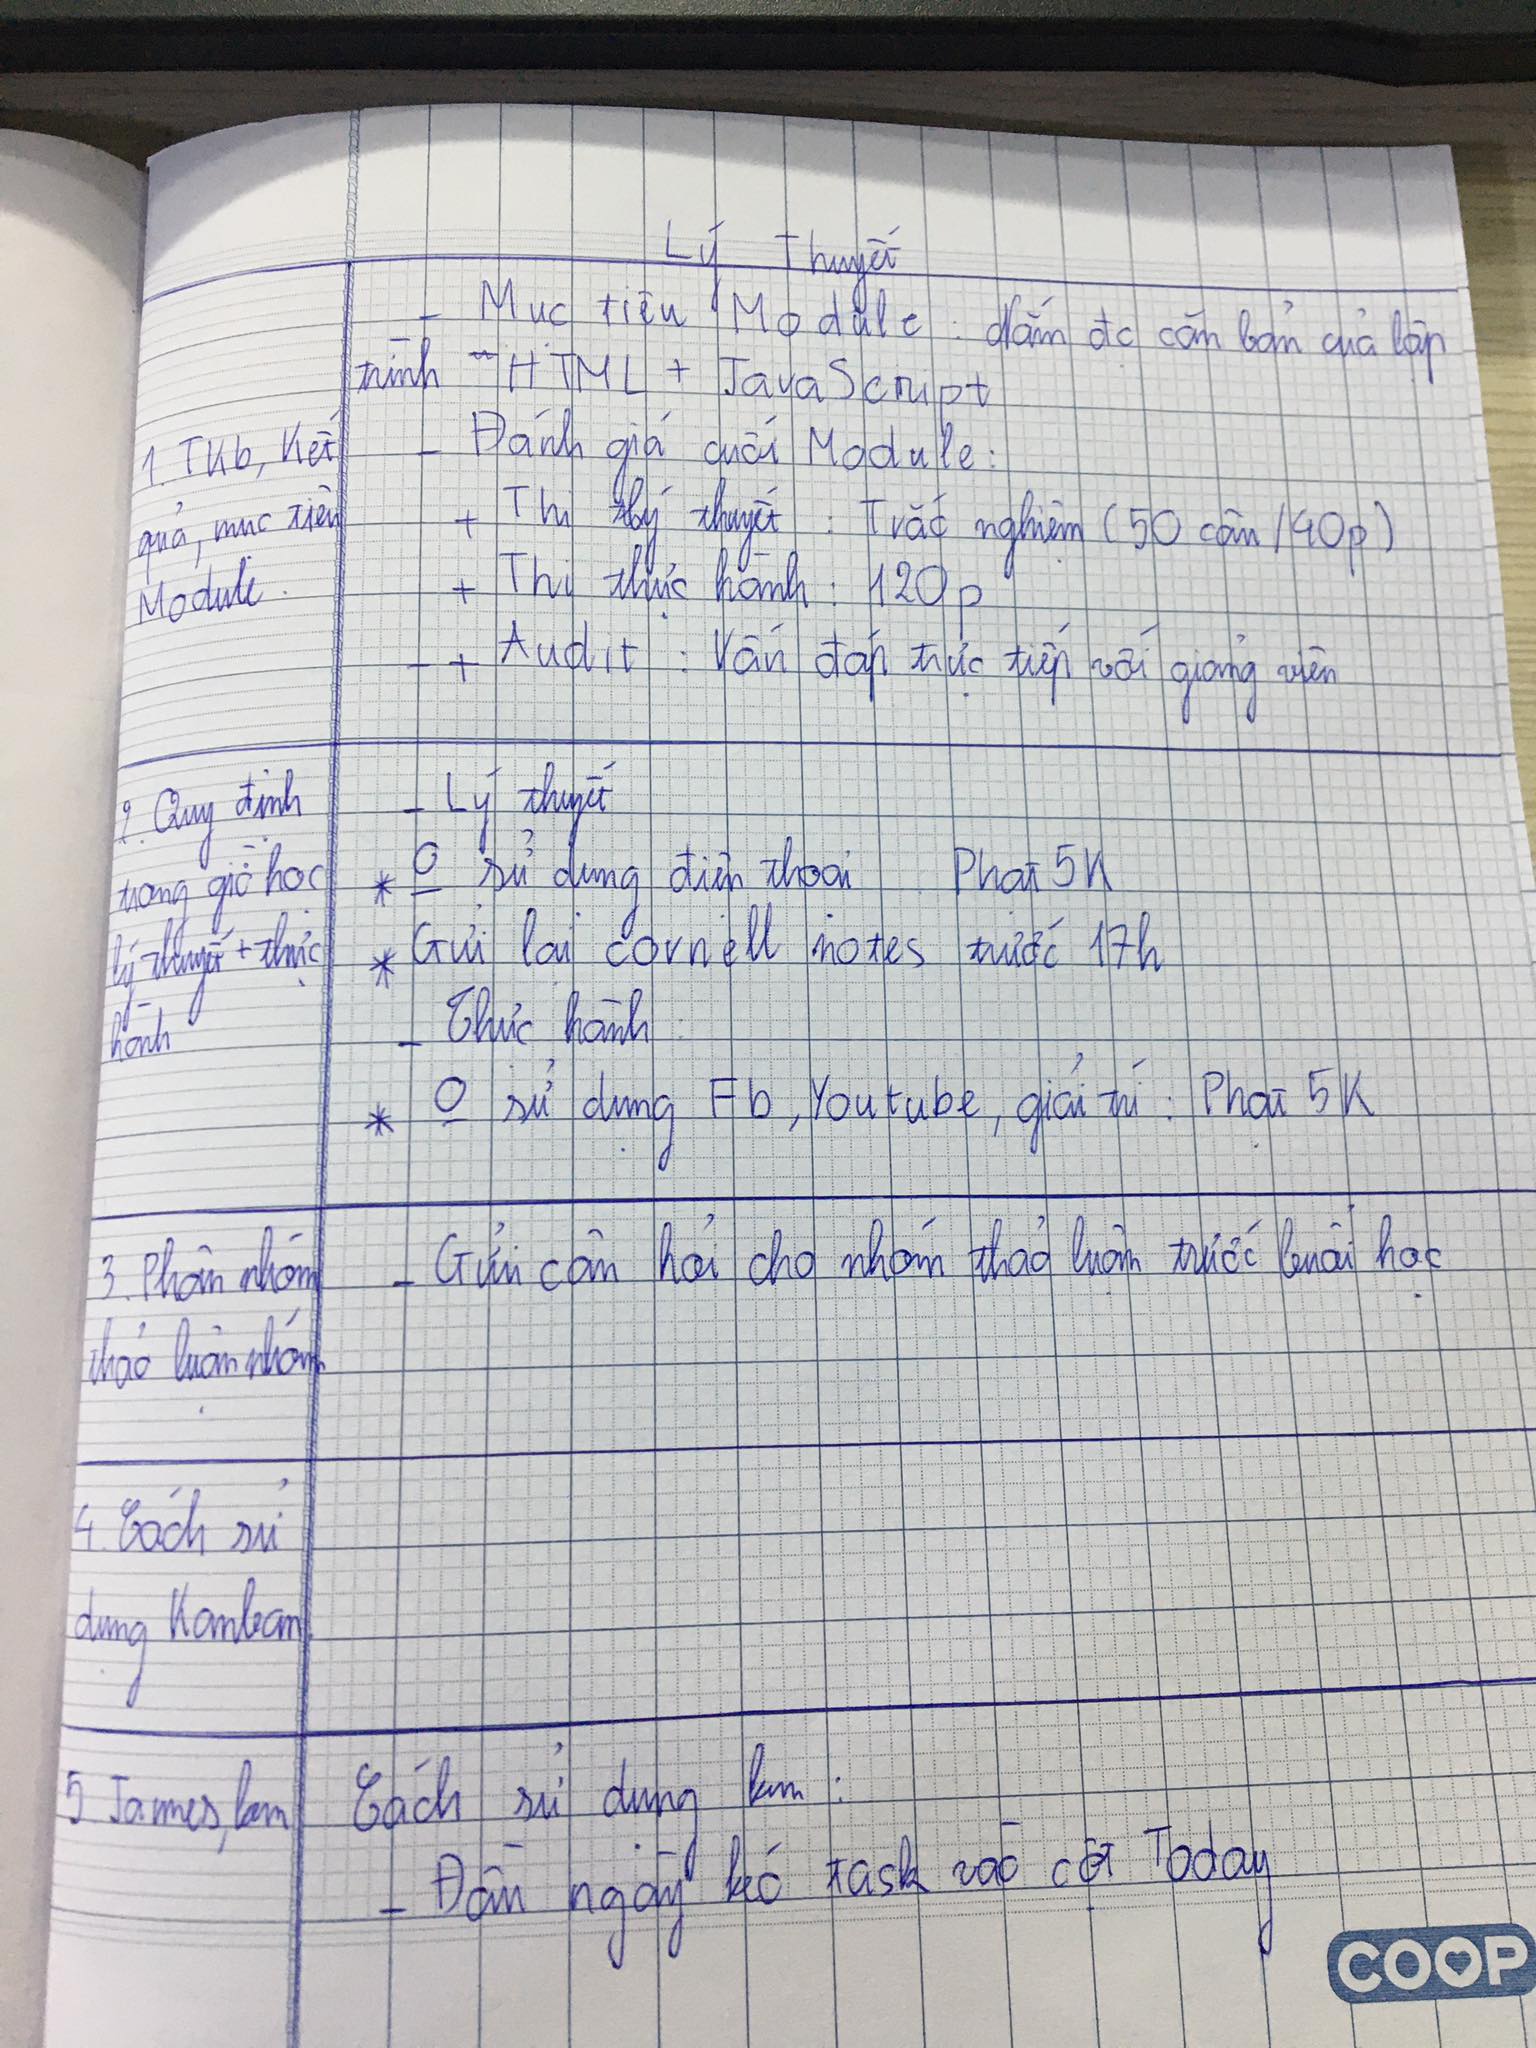 Lý Thuyết
- Mục tiêu Module: Nắm đc căn bản của lập
trình HTML + JavaScript
1. TKb, Kết
quả, mục tiêu
Module.
- Đánh giá cuối Module:
+ Thi lý thuyết: Trắc nghiệm (50 câu/40p)
+ Thi thực hành: 120p
- + Audit: Vấn đáp trực tiếp với giảng viên
2. Quy định
trong giờ học
lý thuyết + thực
hành
- Lý thuyết
* O sử dụng điện thoại Phạt 5K
* Gửi lại cornell notes trước 17h
- Thực hành:
* O sử dụng Fb, Youtube, giải trí: Phạt 5K
3. Phân nhóm
thảo luận nhóm
- Gửi câu hỏi cho nhóm thảo luận trước buổi học
4. Cách sử
dụng Kanban
5 James, bm
Cách sử dụng bm:
- Đầu ngày kéo task vào cột Today
COOP